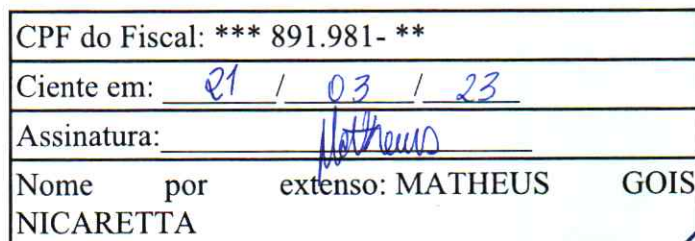 CPF do Fiscal: *** 891.981- **
Ciente em: 21 / 03 / 23
Assinatura: Matheus
Nome por extenso: MATHEUS GOIS
NICARETTA